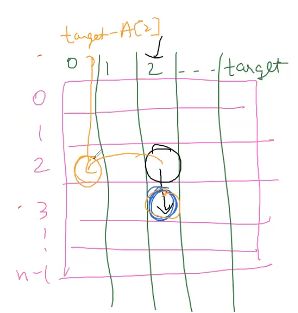 target-A[2]
0 1 2 --- target
0
1
2
3
n-1